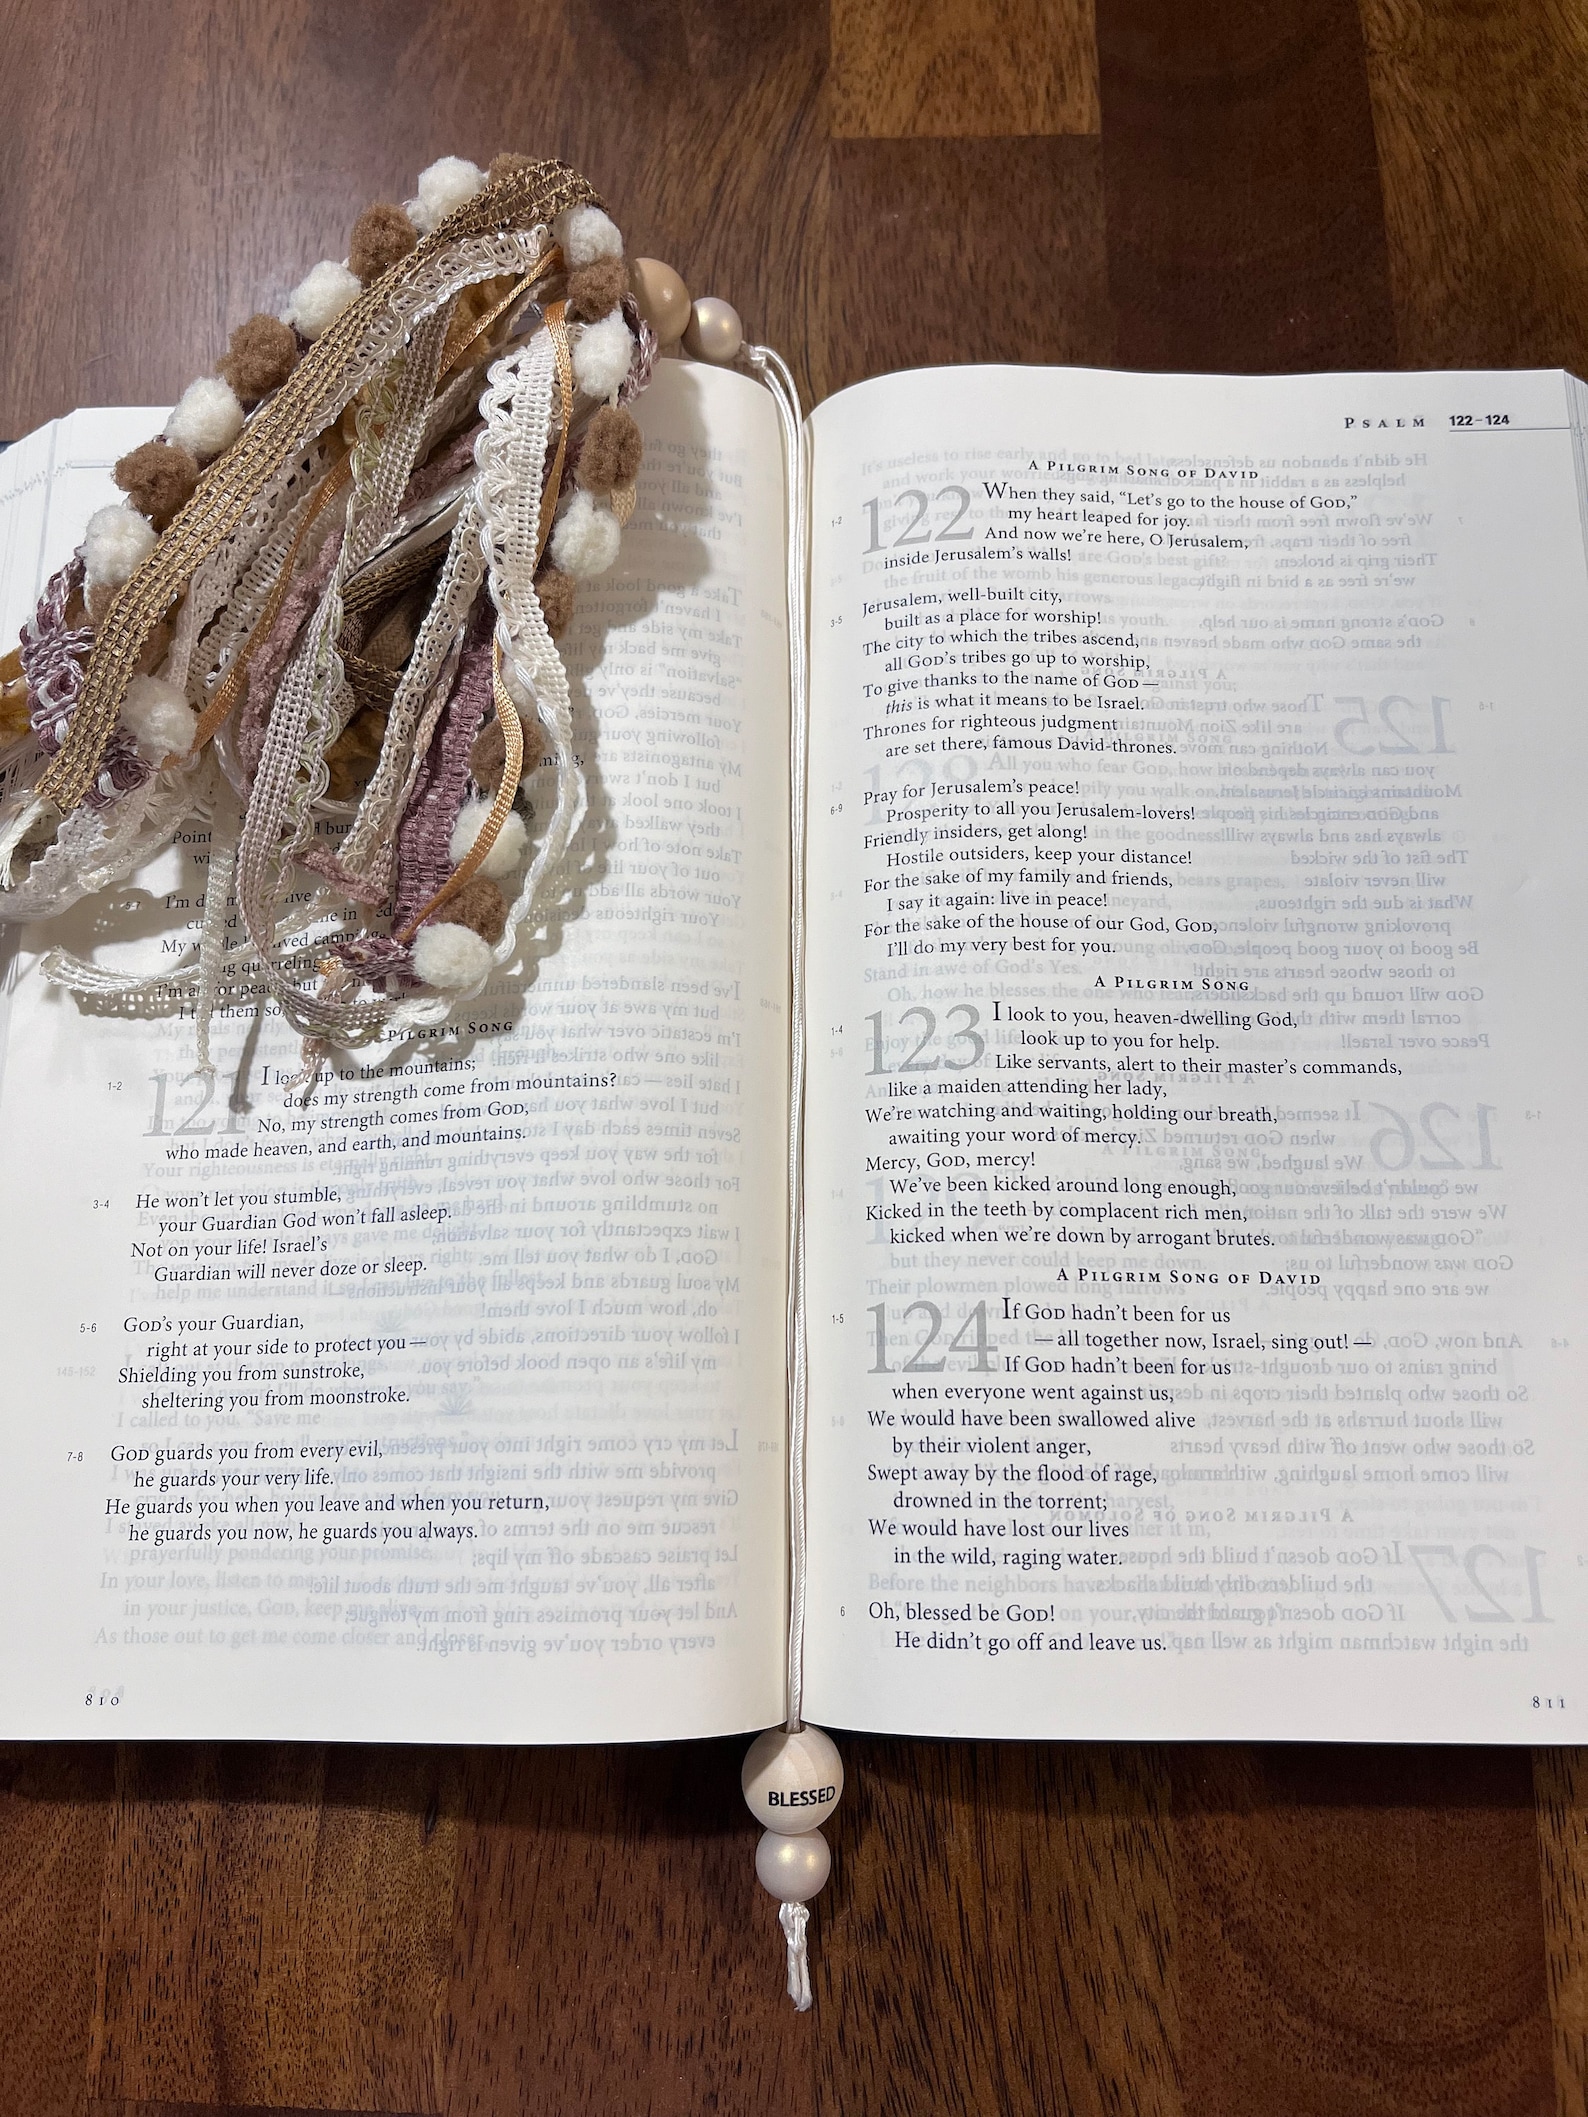 Point
I'm
My
lived
I'm
or
but
I
them so,
PILGRIM SONG
1-2
121
I look up to the mountains;
does my strength come from mountains?
No, my strength comes from GOD,
who made heaven, and earth, and mountains.
3-4
He won't let you stumble,
your Guardian God won't fall asleep.
Not on your life! Israel's
Guardian will never doze or sleep.
5-6
GOD's your Guardian,
right at your side to protect you—
Shielding you from sunstroke,
sheltering you from moonstroke.
7-8
GOD guards you from every evil,
he guards your very life.
He guards you when you leave and when you return,
he guards you now, he guards you always.
810
PSALM 122–124
A PILGRIM SONG OF DAVID
1-2
122
When they said, "Let's go to the house of GOD,"
my heart leaped for joy.
And now we're here, O Jerusalem,
inside Jerusalem's walls!
3-5
Jerusalem, well-built city,
built as a place for worship!
The city to which the tribes ascend,
all GOD's tribes go up to worship,
To give thanks to the name of GOD—
this is what it means to be Israel.
Thrones for righteous judgment
are set there, famous David-thrones.
6-9
Pray for Jerusalem's peace!
Prosperity to all you Jerusalem-lovers!
Friendly insiders, get along!
Hostile outsiders, keep your distance!
For the sake of my family and friends,
I say it again: live in peace!
For the sake of the house of our God, GOD,
I'll do my very best for you.
A PILGRIM SONG
1-4
123
I look to you, heaven-dwelling God,
look up to you for help.
Like servants, alert to their master's commands,
like a maiden attending her lady,
We're watching and waiting, holding our breath,
awaiting your word of mercy.
Mercy, GOD, mercy!
We've been kicked around long enough,
Kicked in the teeth by complacent rich men,
kicked when we're down by arrogant brutes.
A PILGRIM SONG OF DAVID
1-5
124
If GOD hadn't been for us
—all together now, Israel, sing out!—
If GOD hadn't been for us
when everyone went against us,
We would have been swallowed alive
by their violent anger,
Swept away by the flood of rage,
drowned in the torrent;
We would have lost our lives
in the wild, raging water.
6
Oh, blessed be GOD!
He didn't go off and leave us.
811
BLESSED